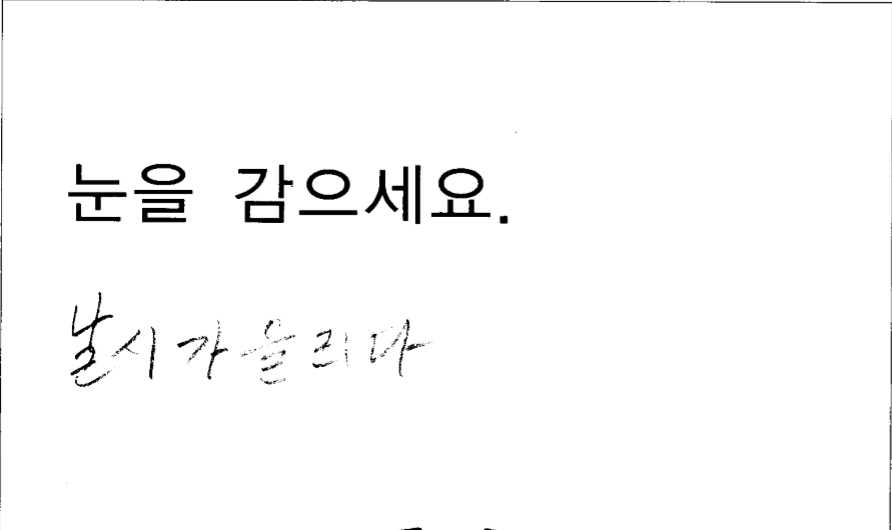 눈을 감으세요.
날시가을리다